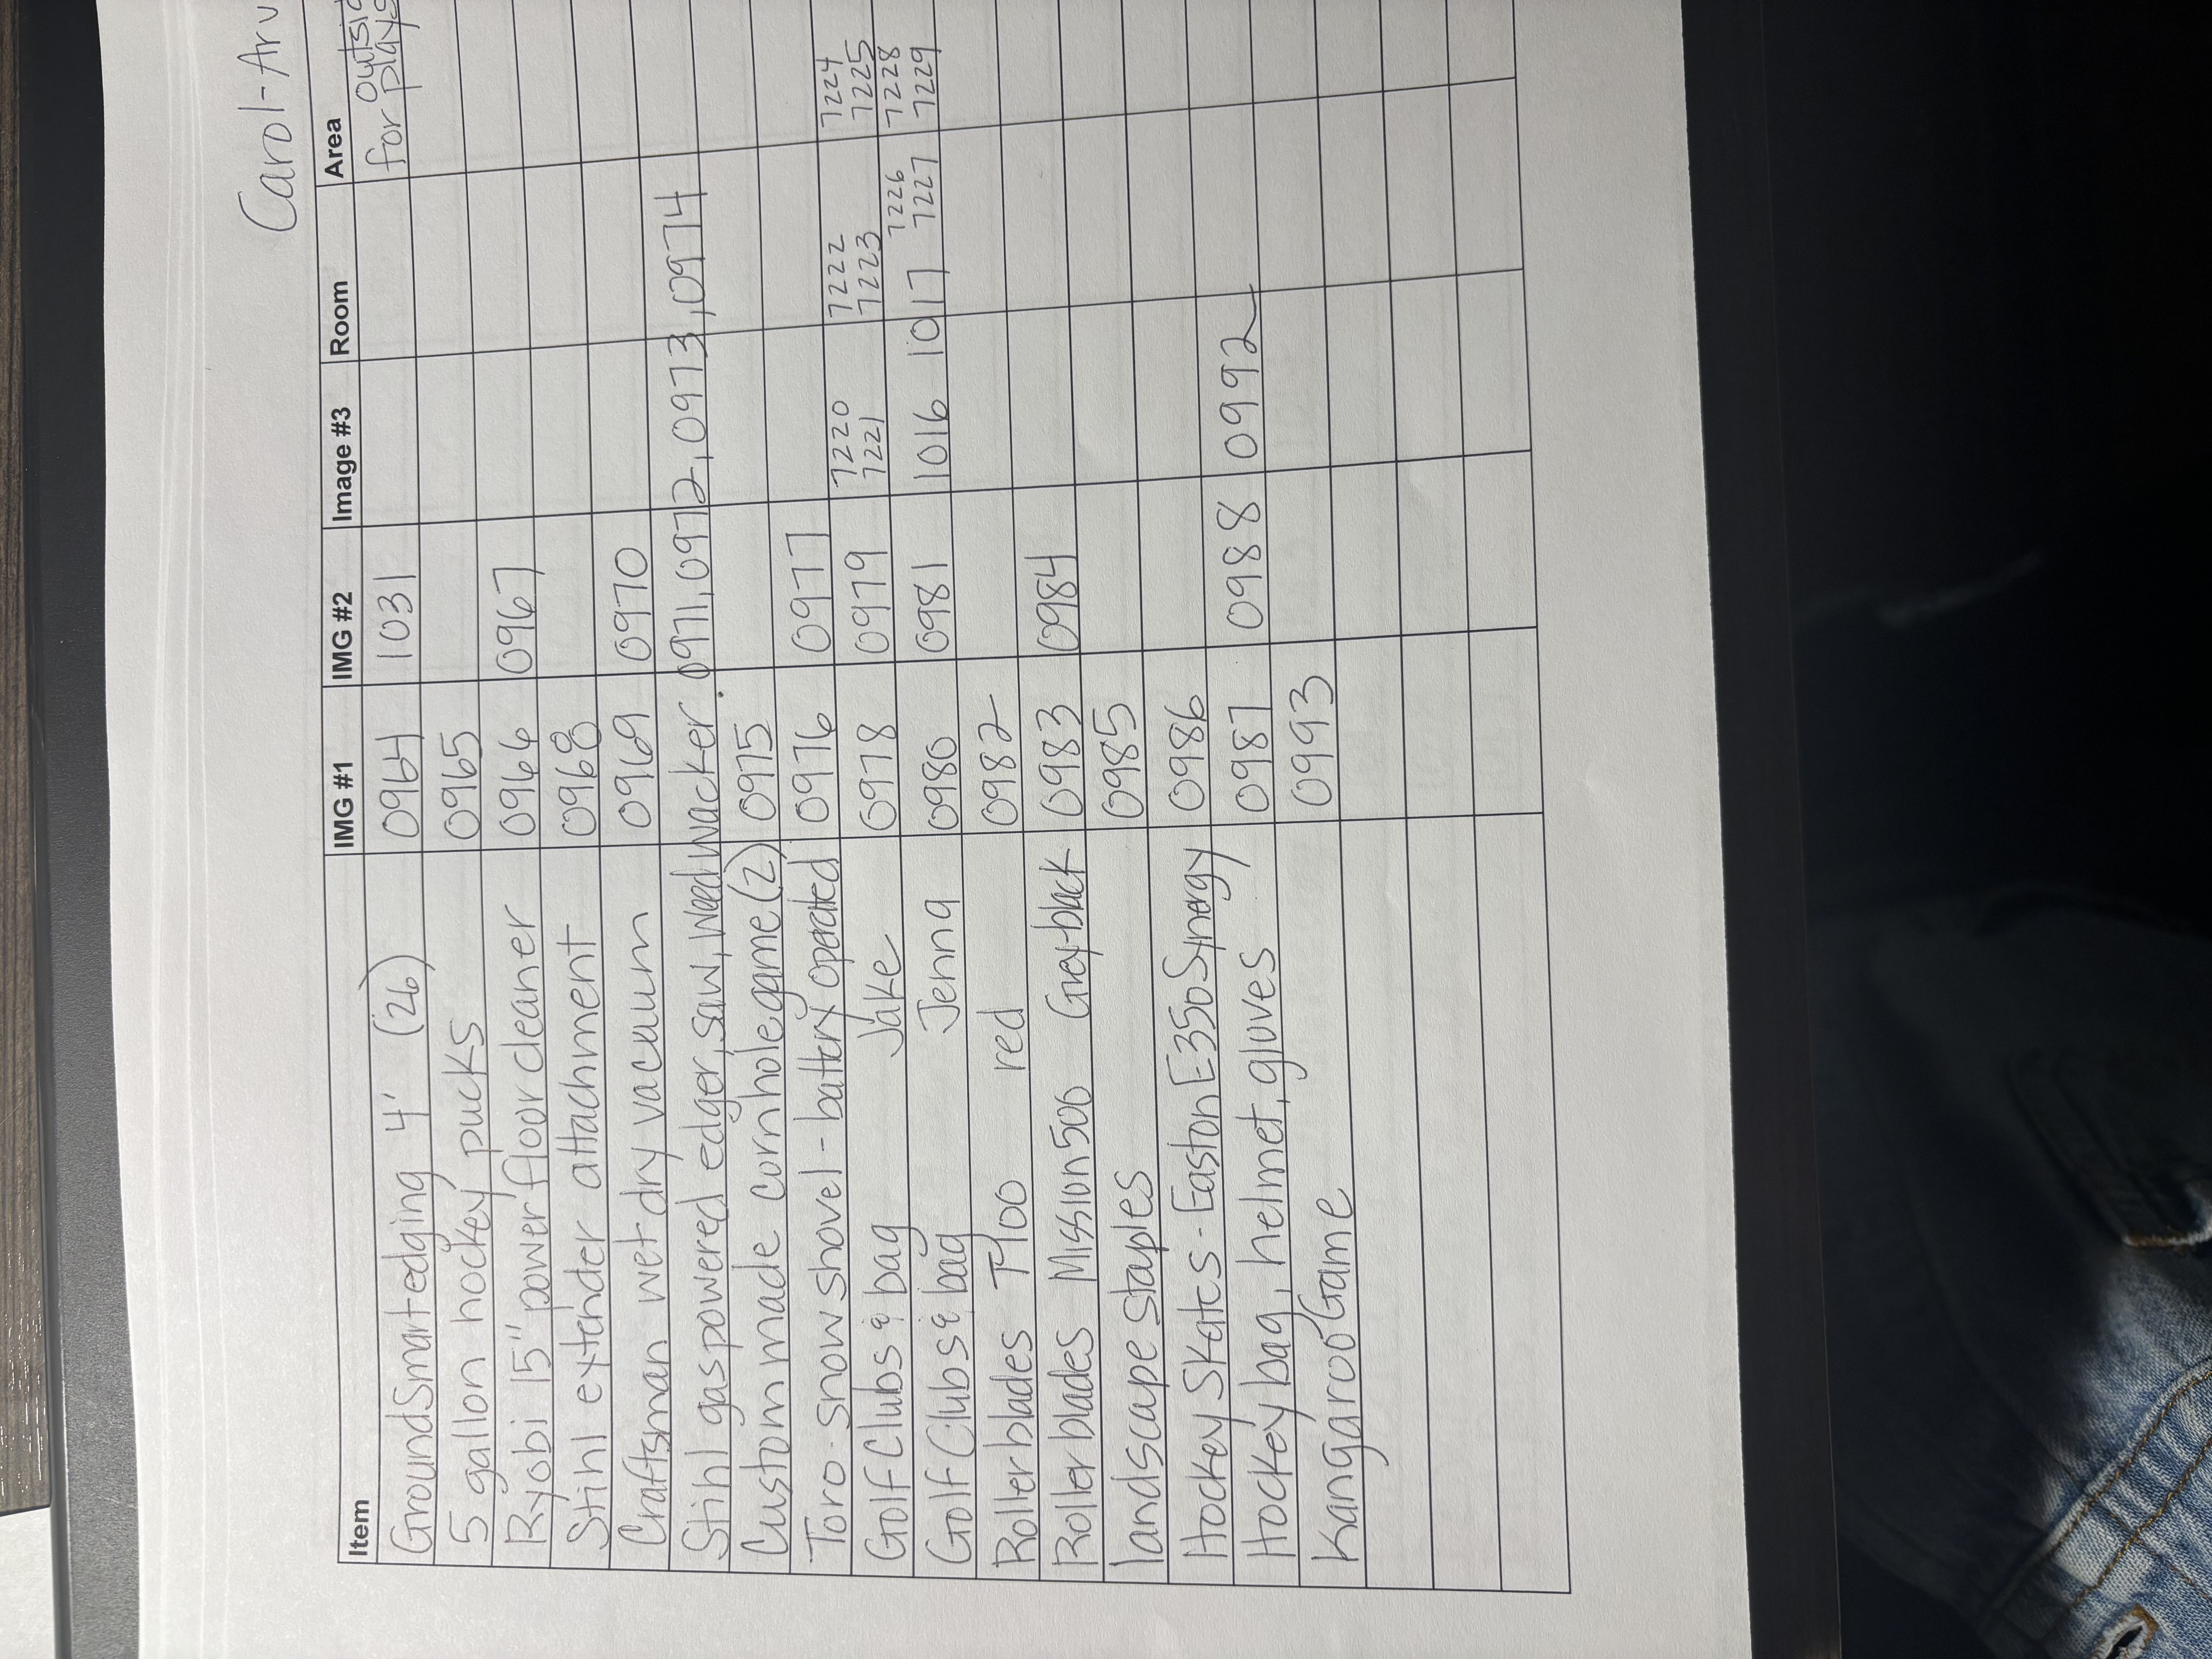 Carol-Arv
Item IMG #1 IMG #2 Image #3 Room Area
GroundSmart edging 4' (26) 0964 1031 for plays
5 gallon hockey pucks 0965
Ryobi 15" power floor cleaner 0966 0967
Stihl extender attachment 0968
Craftsman wet dry vacuum 0969 0970
Stihl gas powered edger, saw, weed wacker 0971, 0972, 0973, 0974
Custom made cornhole game (2) 0975
Toro - snow shovel - battery operated 0976 0977
Golf Clubs & bag Jake 0978 0979 7220 7221 7222 7223 7224 7225
Golf Clubs & bag Jenna 0980 0981 1016 1017 7226 7227 7228 7229
Rollerblades T100 red 0982
Rollerblades Mission 500 Grey-black 0983 0984
landscape staples 0985
Hockey Skates - Easton E350 Synergy 0986
Hockey bag, helmet, gloves 0987 0988 0992
Kangaroo Game 0993